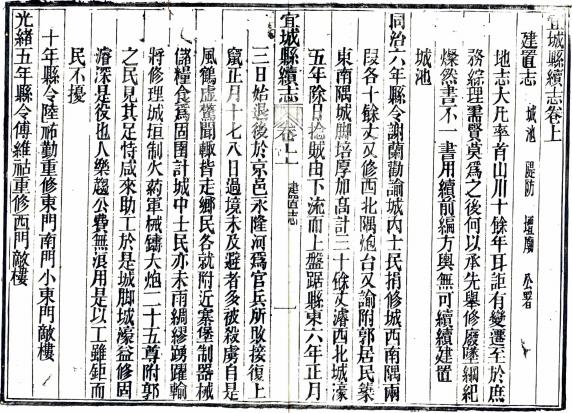 宜城縣續志卷上
建置志 城池 隄防 壇廟 公署
地志大凡率首山川十餘年耳詎有變遷至於庶
務綜理需賢莫為之後何以承先舉修廢墜綱紀
燦然書不一書用續前編方輿無可續續建置
城池
同治六年縣令謝蘭勸諭城內士民捐修城西南隅兩
段各十餘丈又修西北隅炮台又諭附郭居民築
東南隅城腳培厚加高計三十餘丈濬西北城濠
五年除日捻賊由下流而上盤踞縣東六年正月
宜城縣續志 卷上 建置志
三日始退後於京邑永隆河為官兵所敗接復上
竄正月十七八日過境未及避者多被殺虜自是
風鶴虛驚聞輒皆走鄉民各就附近寨堡制器械
儲糧食為固圉計城中士民亦未雨綢繆踴躍輸
將修理城垣制火葯軍械鑄大炮二十五尊附郭
之民見其足恃咸來助工於是城腳城濠益修固
濬深是後也人樂趨公費無浪用是以工雖鉅而
民不擾
十年縣令陸祐勤重修東門南門小東門敵樓
光緒五年縣令傅維祜重修西門敵樓